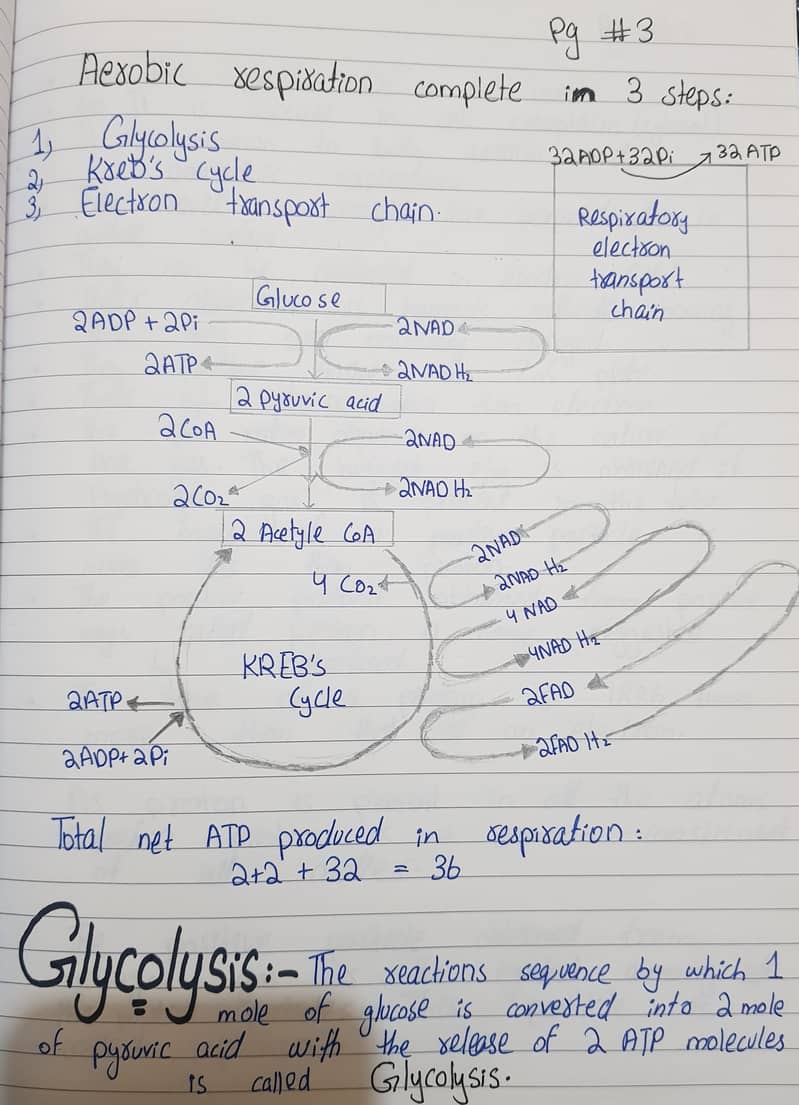 Pg #3
Aerobic respiration complete in 3 steps:
1, Glycolysis
2, Kreb's cycle
3, Electron transport chain.
32ADP+32Pi → 32 ATP
Respiratory
electron
transport
chain
Glucose
2ADP + 2Pi
2NAD
2ATP
2NADH₂
2 pyruvic acid
2CoA
2NAD
2CO₂
2NADH₂
2 Acetyle CoA
2NAD
2NAD H₂
4 CO₂
4 NAD
4NAD H₂
KREB's
Cycle
2FAD
2ATP
2FAD H₂
2ADP+2Pi
Total net ATP produced in respiration:
2+2 + 32 = 36
Glycolysis:- The reactions sequence by which 1
mole of glucose is converted into 2 mole
of pyruvic acid with the release of 2 ATP molecules
is called Glycolysis.